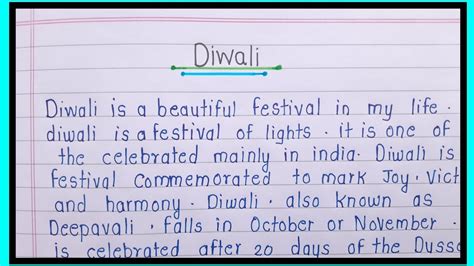 Diwali
Diwali is a beautiful festival in my life .
diwali is a festival of lights . it is one of
the celebrated mainly in india. Diwali is
festival commemorated to mark Joy , Vict
and harmony . Diwali , also known as
Deepavali , falls in October or November .
is celebrated after 20 days of the Duss